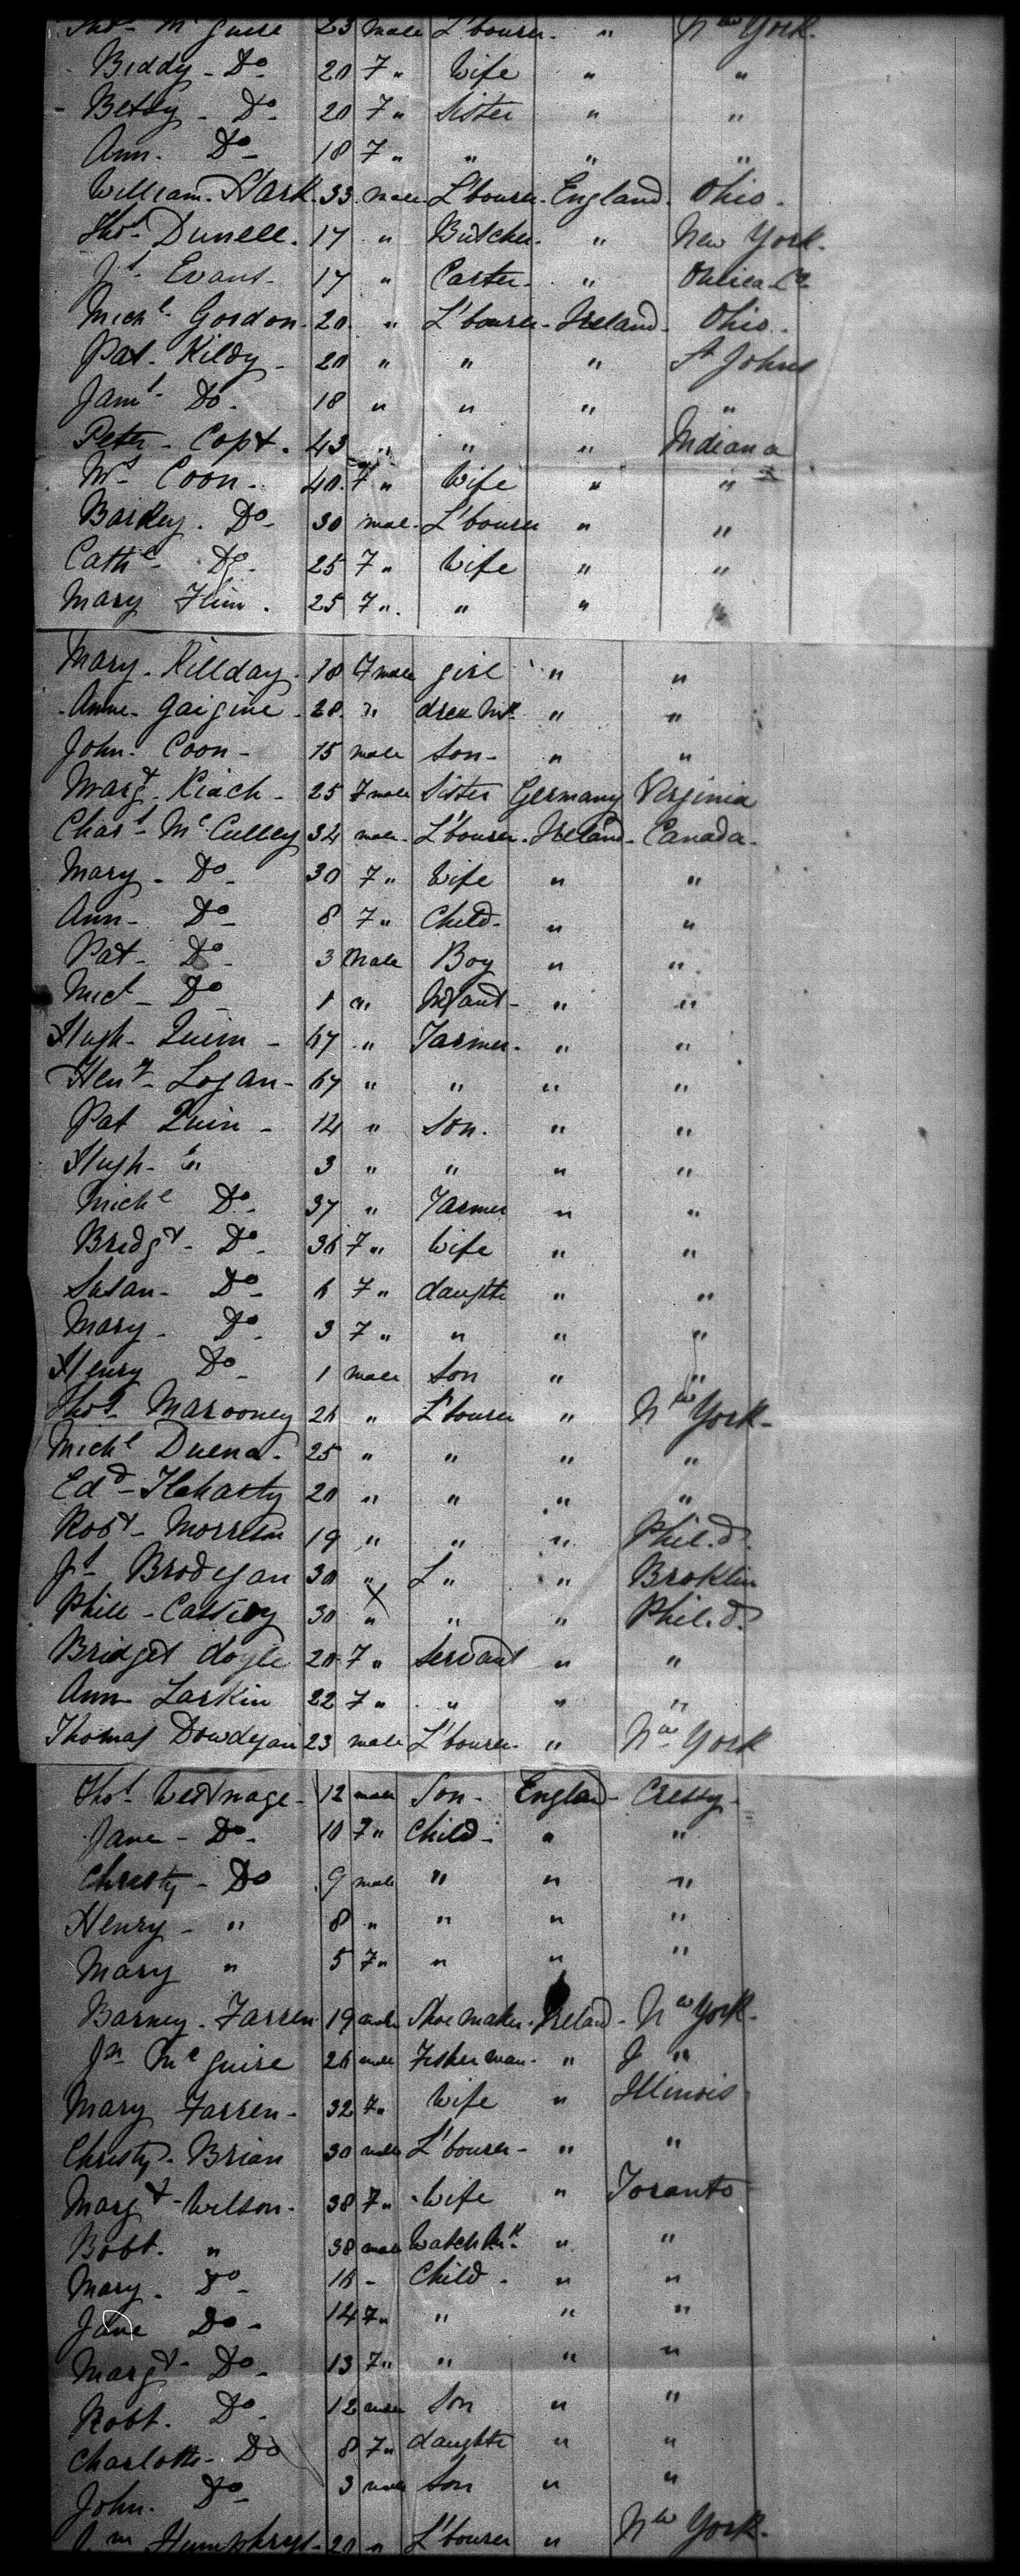 Thos McGuire 23 male L'bourer " New York
Biddy Do 20 F" Wife " "
Betsy Do 20 F" Sister " "
Ann Do 18 F" " " "
William 33 male L'bourer England Ohio
Thos Dunell 17 " Butcher " New York
Js Evans 17 " Carter "
Michl Gordon 20 " L'bourer Ireland Ohio
Pat Kildy 20 " " " St Johns
Jams Do 18 " " " "
Peter 43 " " " Indiana
Mrs Coon 40 F" Wife " "
Do 30 male L'bourer " "
Cathe Do 25 F" Wife " "
Mary 25 F" " " "
Mary Killday 18 Fmale girl " "
Anne 28 " " "
John Coon 15 male Son " "
Margt 25 Fmale Sister Germany Virginia
Chars McCulley 34 male L'bourer Ireland Canada
Mary Do 30 F" Wife " "
Ann Do 8 F" Child " "
Pat Do 3 Male Boy " "
Micl Do 1 " Infant " "
Hugh Quinn 67 " Farmer " "
Heny Logan 67 " " " "
Pat Quin 14 " Son " "
Hugh " 3 " " " "
Michl Do 37 " Farmer " "
Bridgt Do 36 F" Wife " "
Susan Do 6 F" daughte " "
Mary Do 3 F" " " "
Henry Do 1 male Son " "
Thos Marooney 26 " L'bourer " New York
Michl Duena 25 " " " "
Edd 20 " " " "
Robt Morrison 19 " " " Phild
Js Brodegan 30 " L " " Broklin
Phill Cassidy 30 " " " Phild
Bridget doyle 20 F" Servant " "
Ann Larkin 22 F" " " "
Thomas Dowdegan 23 male L'bourer " New York
Thos Westnage 12 male Son England Cressy
Jane Do 10 F" Child " "
Christy Do 9 male " " "
Henry " 8 " " " "
Mary " 5 F" " " "
Barney Farren 19 male Shoe maker Ireland New York
Jn McGuire 26 male Fisherman " "
Mary Farren 32 F" Wife " Illinois
Christy Brian 30 male L'bourer " "
Margt Wilson 38 F" Wife " Toranto
Robt " 38 male " "
Mary Do 16 - Child " "
Jane Do 14 F" " " "
Margt Do 13 F" " " "
Robt Do 12 male Son " "
Charlotte Do 8 F" daughte " "
John Do 3 male Son " "
Humphrys 20 " L'bourer " New York